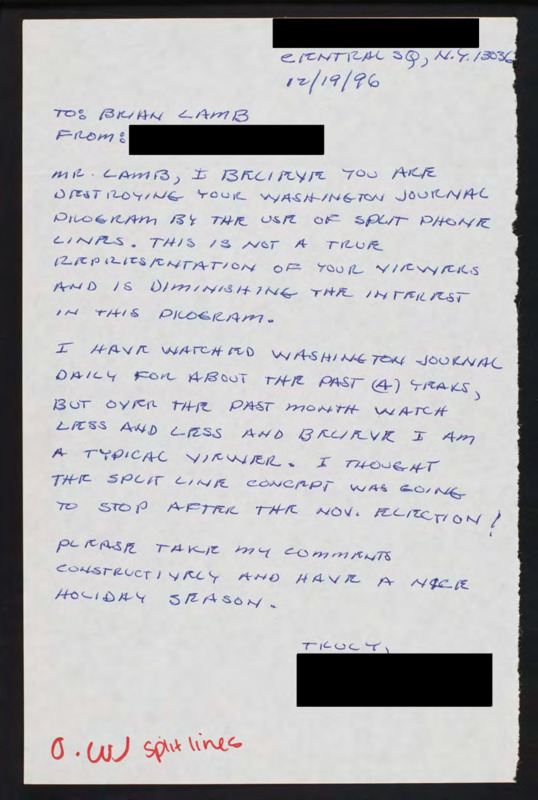 CENTRAL SQ, N.Y. 13036
12/19/96
TO: BRIAN LAMB
FROM:
MR. LAMB, I BELIEVE YOU ARE
DESTROYING YOUR WASHINGTON JOURNAL
PROGRAM BY THE USE OF SPLIT PHONE
LINES. THIS IS NOT A TRUE
REPRESENTATION OF YOUR VIEWERS
AND IS DIMINISHING THE INTEREST
IN THIS PROGRAM.
I HAVE WATCHED WASHINGTON JOURNAL
DAILY FOR ABOUT THE PAST (4) YEARS,
BUT OVER THE PAST MONTH WATCH
LESS AND LESS AND BELIEVE I AM
A TYPICAL VIEWER. I THOUGHT
THE SPLIT LINE CONCEPT WAS GOING
TO STOP AFTER THE NOV. ELECTION!
PLEASE TAKE MY COMMENTS
CONSTRUCTIVELY AND HAVE A NICE
HOLIDAY SEASON.
TRULY,
split lines